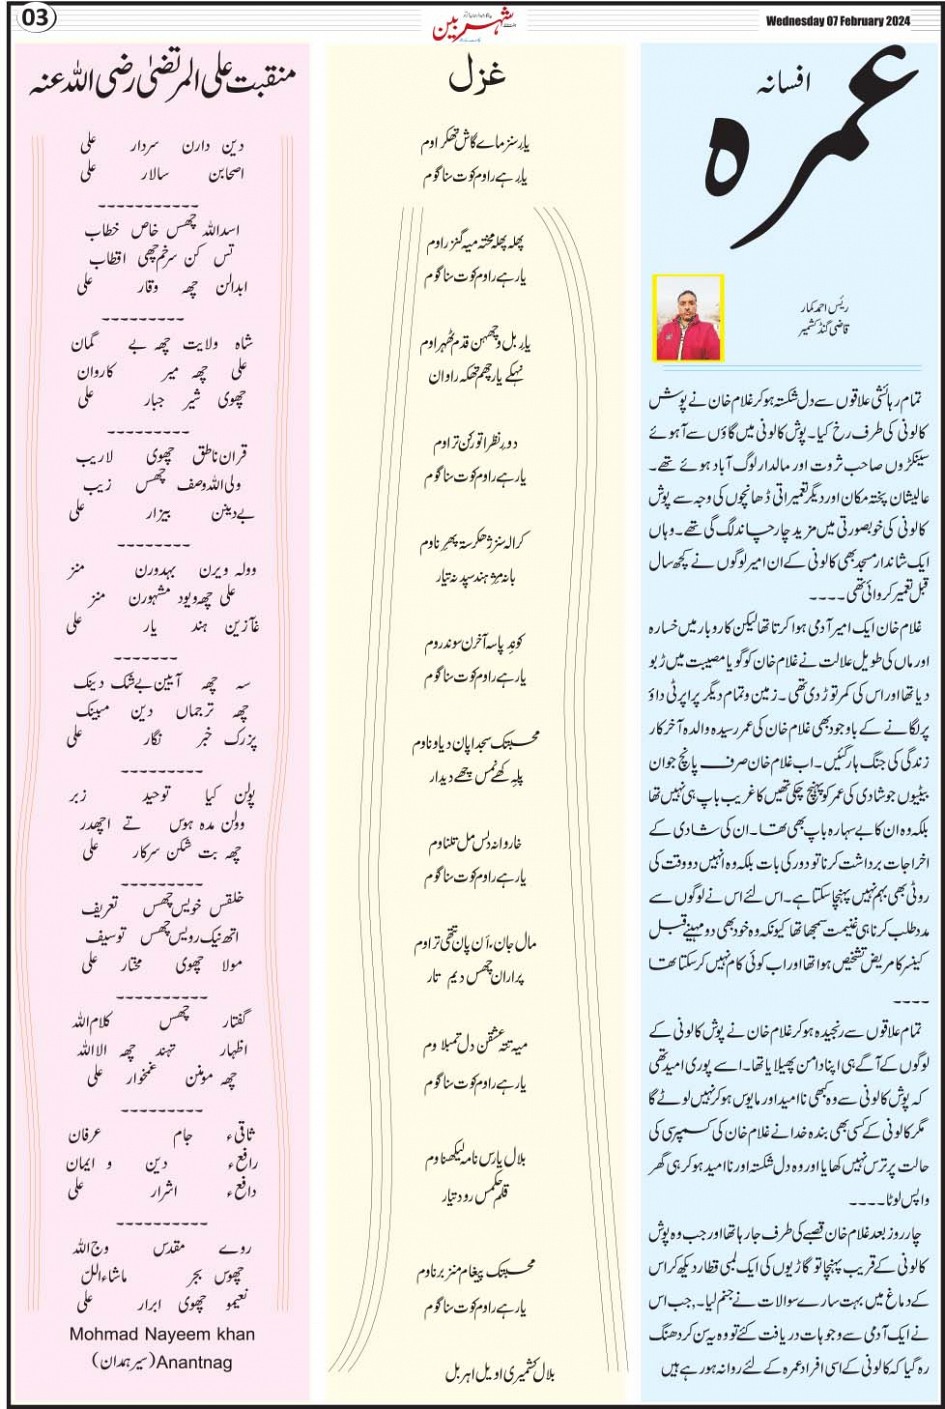 03
شہر بین
Wednesday 07 February 2024
افسانہ
عمرہ
رئیس احمد کمار
قاضی گنڈ کشمیر
تمام رہائشی علاقوں سے دل شکستہ ہو کر غلام خان نے پوش
کالونی کی طرف رخ کیا۔ پوش کالونی میں گاؤں سے آہوئے
سینکڑوں صاحب ثروت اور مالدار لوگ آباد ہوئے تھے۔
عالیشان پختہ مکان اور دیگر تعمیراتی ڈھانچوں کی وجہ سے پوش
کالونی کی خوبصورتی میں مزید چار چاند لگ گی تھے۔ وہاں
ایک شاندار مسجد بھی کالونی کے ان امیر لوگوں نے کچھ سال
قبل تعمیر کروائی تھی۔۔۔۔
غلام خان ایک امیر آدمی ہوا کرتا تھا لیکن کاروبار میں خسارہ
اور ماں کی طویل علالت نے غلام خان کو گویا مصیبت میں ڑبو
دیا تھا اور اس کی کمر توڑ دی تھی۔ زمین و تمام دیگر پراپرٹی داؤ
پر لگانے کے باوجود بھی غلام خان کی عمر رسیدہ والدہ آخر کار
زندگی کی جنگ ہار گئیں۔ اب غلام خان صرف پانچ جوان
بیٹیوں جو شادی کی عمر کو پہنچ چکی تھیں کا غریب باپ ہی نہیں تھا
بلکہ وہ ان کا بے سہارہ باپ بھی تھا۔ ان کی شادی کے
اخراجات برداشت کرنا تو دور کی بات بلکہ وہ انہیں دو وقت کی
روٹی بھی بہم نہیں پہنچا سکتا ہے۔ اس لئے اس نے لوگوں سے
مدد طلب کرنا ہی غنیمت سمجھا تھا کیونکہ وہ خود بھی دو مہینے قبل
کینسر کا مریض تشخیص ہوا تھا اور اب کوئی کام نہیں کر سکتا تھا
۔۔۔۔
تمام علاقوں سے رنجیدہ ہو کر غلام خان نے پوش کالونی کے
لوگوں کے آگے ہی اپنا دامن پھیلایا تھا۔ اسے پوری امید تھی
کہ پوش کالونی سے وہ کبھی نا امید اور مایوس ہو کر نہیں لوٹے گا
مگر کالونی کے کسی بھی بندہ خدا نے غلام خان کی کسمپرسی کی
حالت پر ترس نہیں کھایا اور وہ دل شکستہ اور نا امید ہو کر ہی گھر
واپس لوٹا۔۔۔۔
چار روز بعد غلام خان قصبے کی طرف جا رہا تھا اور جب وہ پوش
کالونی کے قریب پہنچا تو گاڑیوں کی ایک لمبی قطار دیکھ کر اس
کے دماغ میں بہت سارے سوالات نے جنم لیا۔، جب اس
نے ایک آدمی سے وجوہات دریافت کئے تو وہ یہ سن کر دھنگ
رہ گیا کہ کالونی کے اسی افراد عمرہ کے لئے روانہ ہو رہے ہیں
غزل
یارسنز مانے گاش تھکراوم
یارہے راوم کوت سنا گوم
پھلہ پھلہ مختہ میہ گنزراوم
یارہے راوم کوت سنا گوم
یارہے راوم کوت سنا گوم
دور نظراتو رکن تراوم
یارہے راوم کوت سنا گوم
بانہ مژ ہند سپد نہ تیار
یارہے راوم کوت سنا گوم
محبتک سجدا پان دیاوناوم
یارہے راوم کوت سنا گوم
مال جان، اَن پان تتھی تراوم
پراران چھس دیم تار
میہ تتہ عشقن دل تمبلاوم
یارہے راوم کوت سنا گوم
بلال یارس نامہ لیکھناوم
قلم حکمس رود تیار
محبتک پیغام منز برناوم
یارہے راوم کوت سنا گوم
بلال کشمیری اویل اہربل
منقبت علی المرتضیٰ رضی اللہ عنہ
دین دارن سردار علی
اصحابن سالار علی
اسداللہ چھس خاص خطاب
تس کن سرخم چھی اقطاب
ابدالن چھہ وقار علی
شاہ ولایت چھہ بے گمان
علی چھہ میر کاروان
چھوی شیر جبار علی
قران ناطق چھوی لاریب
ولی اللہ وصف چھس زیب
بے دینن بیزار علی
وولہ ویرن بہدورن منز
علی چھہ ویود مشہورن منز
غآزین ہند یار علی
سہ چھہ آیین بے شک دینک
چھہ ترجماں دین مبینک
پزرک خبر نگار علی
پولن کیا توحید زبر
وولن مدہ ہوس تے اچھدر
چھہ بت شکن سرکار علی
خلقس خویس چھس تعریف
اتھ نیک رویس چھس توسیف
مولا چھوی مختار علی
گفتار چھس کلام اللہ
اظہار تہند چھہ الا اللہ
چھہ مومنن غمخوار علی
ثاقیء جام عرفان
رافعء دین و ایمان
دافعء اشرار علی
روے مقدس وج اللہ
چھوس بجر ماشاءاللّ
نعیمو چھوی ابرار علی
Mohmad Nayeem khan
Anantnag (سیر ہمدان)